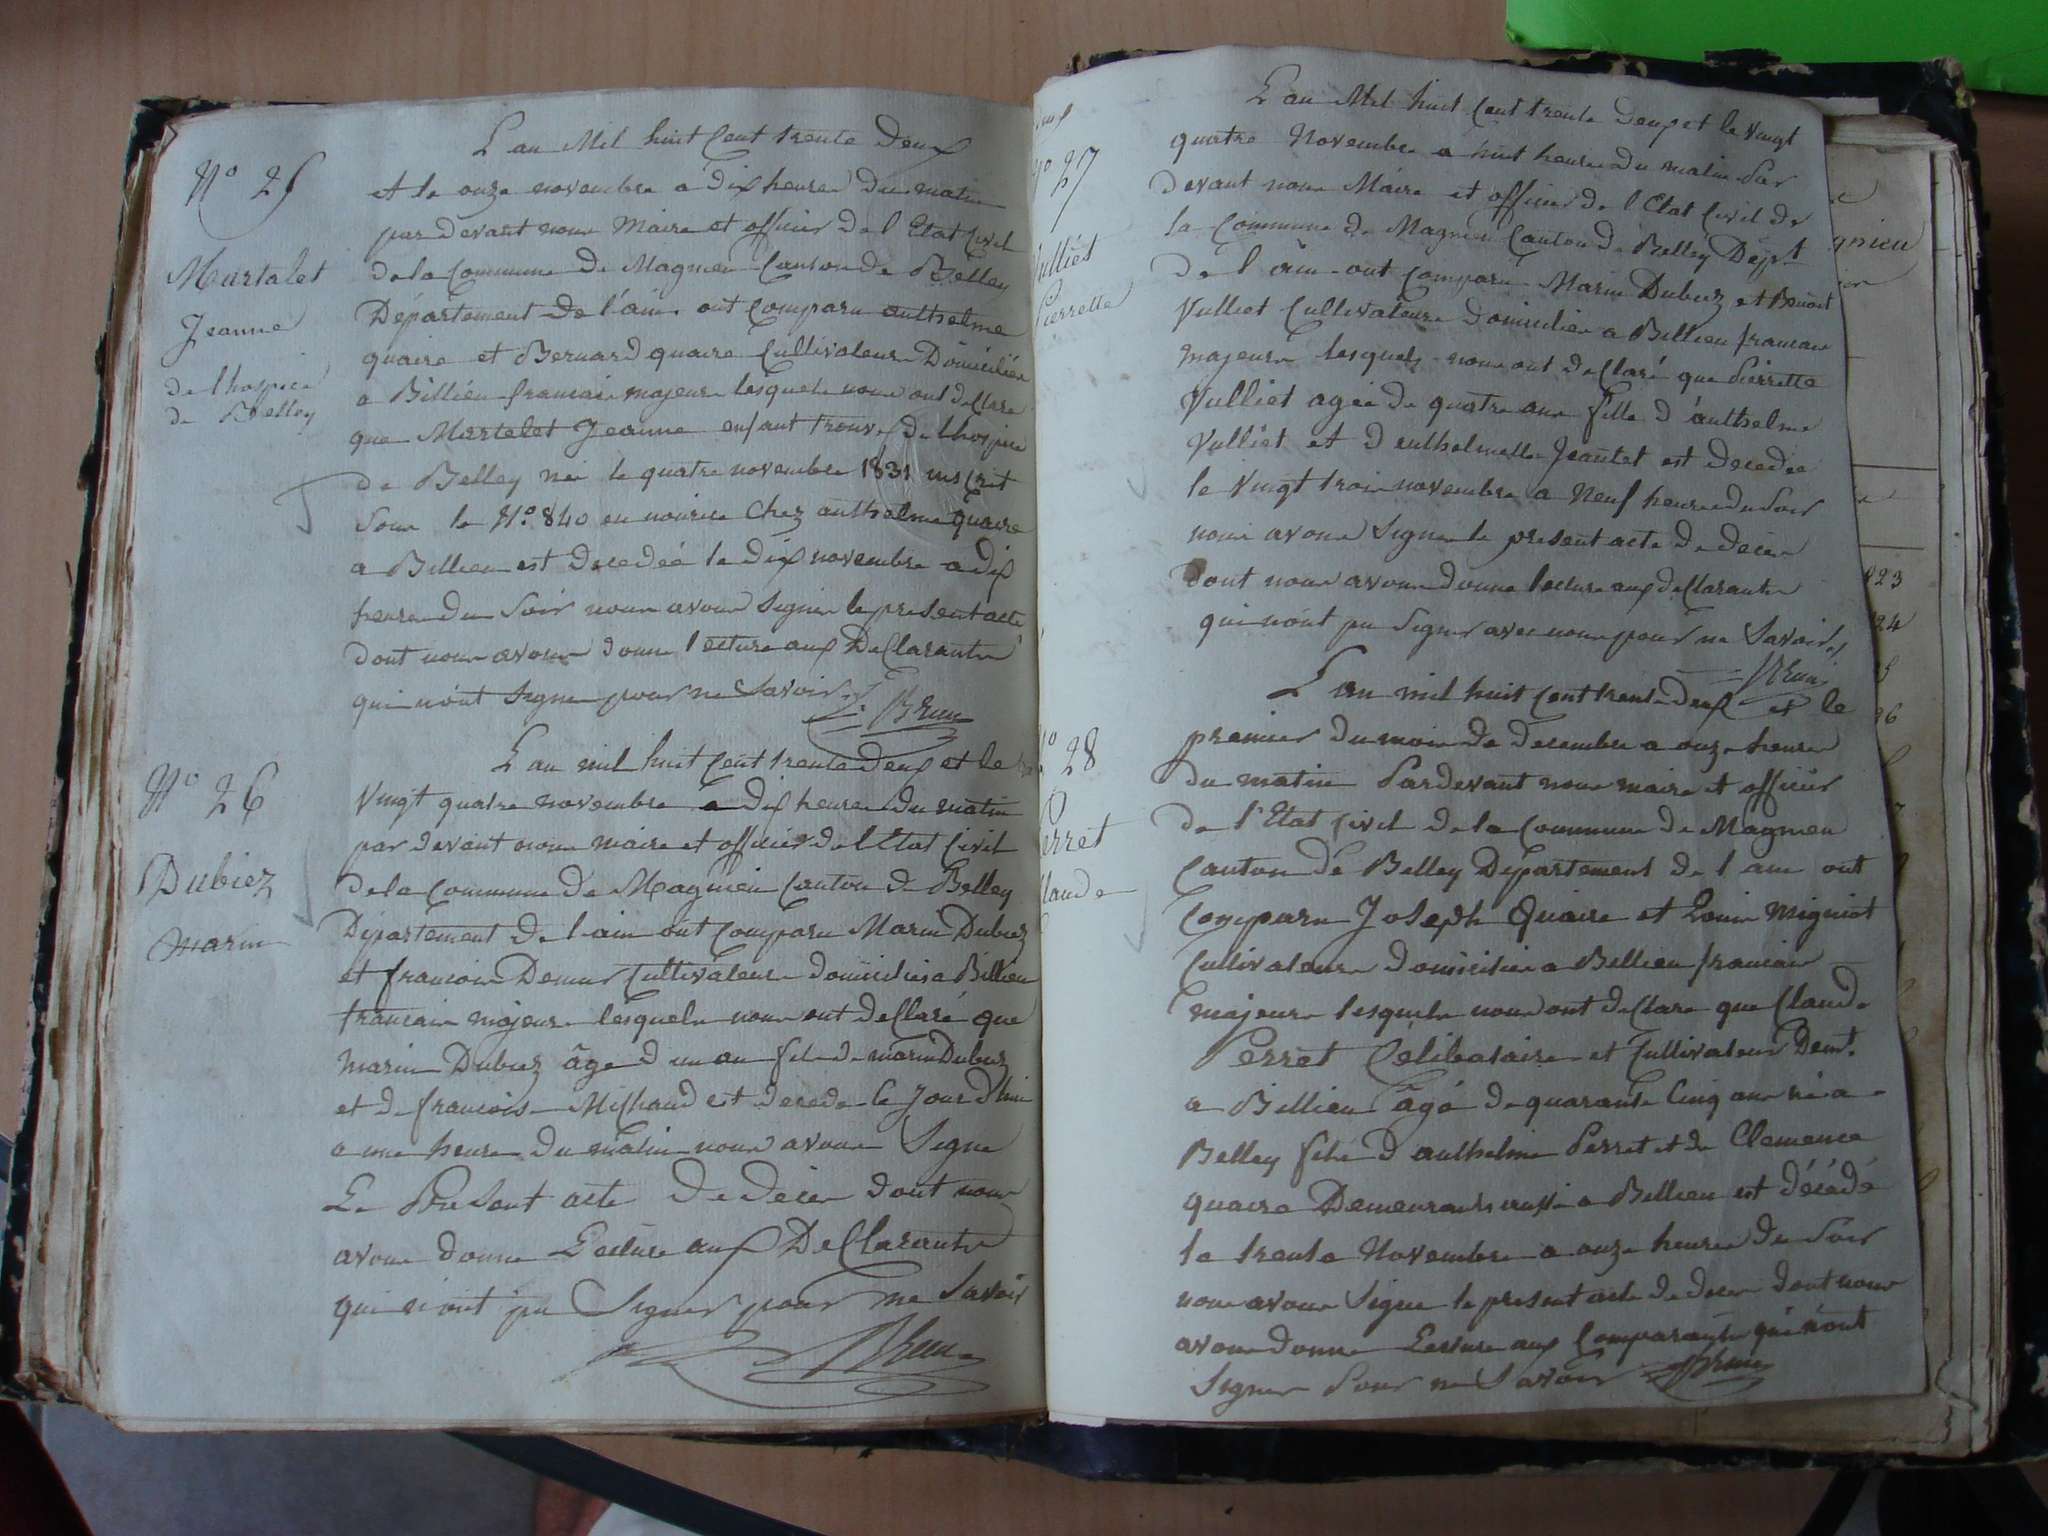 L'an Mil huit Cent trente deux
N° 25
et le onze novembre a dix heures du matin
par devant nous Maire et officier de l'Etat Civil
Martalet
de la Commune de Magnieu Canton de Belley
Jeanne
Département de l'ain ont comparu anthelme
de lhospice
quaire et Bernard quaire Cultivateurs Domiciliés
de Belley
a Billieu francais majeurs lesquels nous ont declare
que Martalet Jeanne enfant trouvé de lhospice
de Belley née le quatre novembre 1831 inscrit
sous le N° 840 en nourice chez anthelme quaire
a Billieu est decedeé le dix novembre a dix
heures du soir nous avons signer le present acte
dont nous avons donne lecture aux Declarants
qui n'ont signe pour ne savoir. Brun
L'an mil huit cent trente deux et le
N° 26
vingt quatre novembre a dix heures du matin
par devant nous maire et officier de l'Etat Civil
Dubiez
de la Commune de Magnieu canton de Belley
marin
Département de l'ain ont comparu Marin Dubiez
et francois Demur Cultivateurs domiciliés a Billieu
francais majeurs lesquels nous ont declaré que
marin Dubiez âge d'un an fils de marin Dubiez
et de francois Michaud est decede le Jour d'hui
a une heure du matin nous avons Signe
Le Present acte de deces dont nous
avons donne Lecture aux Declarants
qui n'ont pu Signer pour ne savoir
Brun
L'an Mil huit Cent trente deux et le vingt
quatre Novembre a huit heures du matin Par
N° 27
devant nous Maire et officier de l'Etat Civil de
la Commune de Magnieu Canton de Belley Dept
Vulliet
de l'ain ont comparu Marin Dubiez et Benoit
Pierrette
Vulliet Cultivateurs domiciliés a Billieu francais
majeurs lesquels nous ont declaré que Pierrette
Vulliet ageé de quatre ans fille d'anthelme
Vulliet et d'enthelmette Jeantet est decedée
le vingt trois novembre a Neuf heures du soir
nous avons signer le present acte de deces
dont nous avons donne lecture aux declarants
qui n'ont pu signer avec nous pour ne savoir
Brun
L'an mil huit cent trente deux et le
premier du mois de decembre a onze heures
28
du matin Pardevant nous maire et officier
de l'Etat Civil de la Commune de Magnieu
erret
Canton de Belley Département de l'ain ont
laude
comparu Joseph Quaire et Louis Migniot
Cultivateurs domiciliés a Billieu francais
majeurs lesquels nous ont declare que Claude
Perret Célibataire et Cultivateur Demt.
a Billieu âgé de quarante cinq ans né a
Belley fils d'anthelme Perret et de Clemence
quaire Demeurants aussi a Billieu est décédé
le trente Novembre a onze heures du soir
nous avons Signe le present acte de deces dont nous
avons donne Lecture aux Comparants qui n'ont
Signer Pour ne Savoir Brun
gnieu
823
24
26